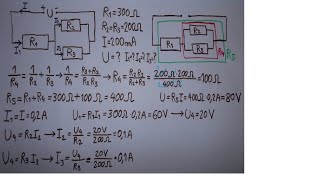 I U
R₂ R₁=300Ω
R₁ R₃ R₂=R₃=200Ω
I=200mA
U=? I₁? I₂? I₃?
R₁ R₂ R₃ R₄ R₅
1/R₄ = 1/R₂ + 1/R₃ → 1/R₄ = R₂+R₃/R₂R₃ → R₄ = R₂R₃/R₂+R₃ = 200Ω·200Ω/400Ω = 100Ω
R₅=R₁+R₄=300Ω+100Ω=400Ω U=R₅I=400Ω·0,2A=80V
I₁=I=0,2A U₁=R₁I=300Ω·0,2A=60V → U₄=20V
U₄=R₂I₂ → I₂ = U₄/R₂ = 20V/200Ω = 0,1A
U₄=R₃I₃ → I₃ = U₄/R₃ = 20V/200Ω = 0,1A